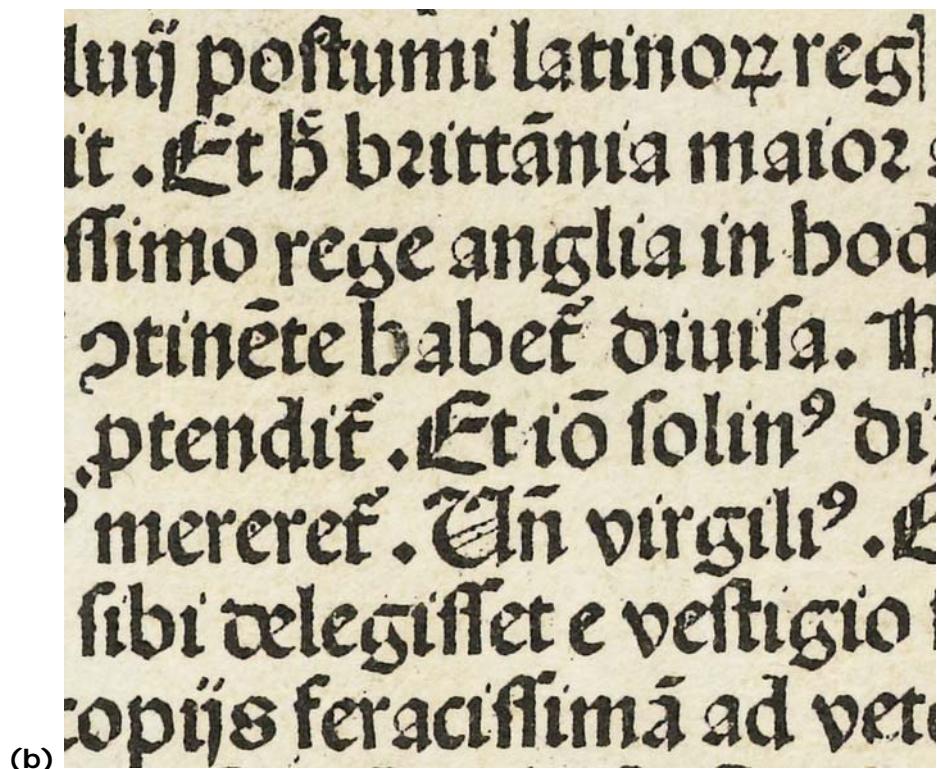 luij poſtumi latinoꝝ reg
it . Et h̄ brittānia maior
ſſimo rege anglia in hod
ꝯtinēte habet᷑ diuiſa .
ꝓtendit᷑ . Et iō ſolinꝰ di
mereret᷑ . Vn̄ virgiliꝰ . E
ſibi delegiſſet e veſtigio
copijs feraciſſimā ad vete
(b)